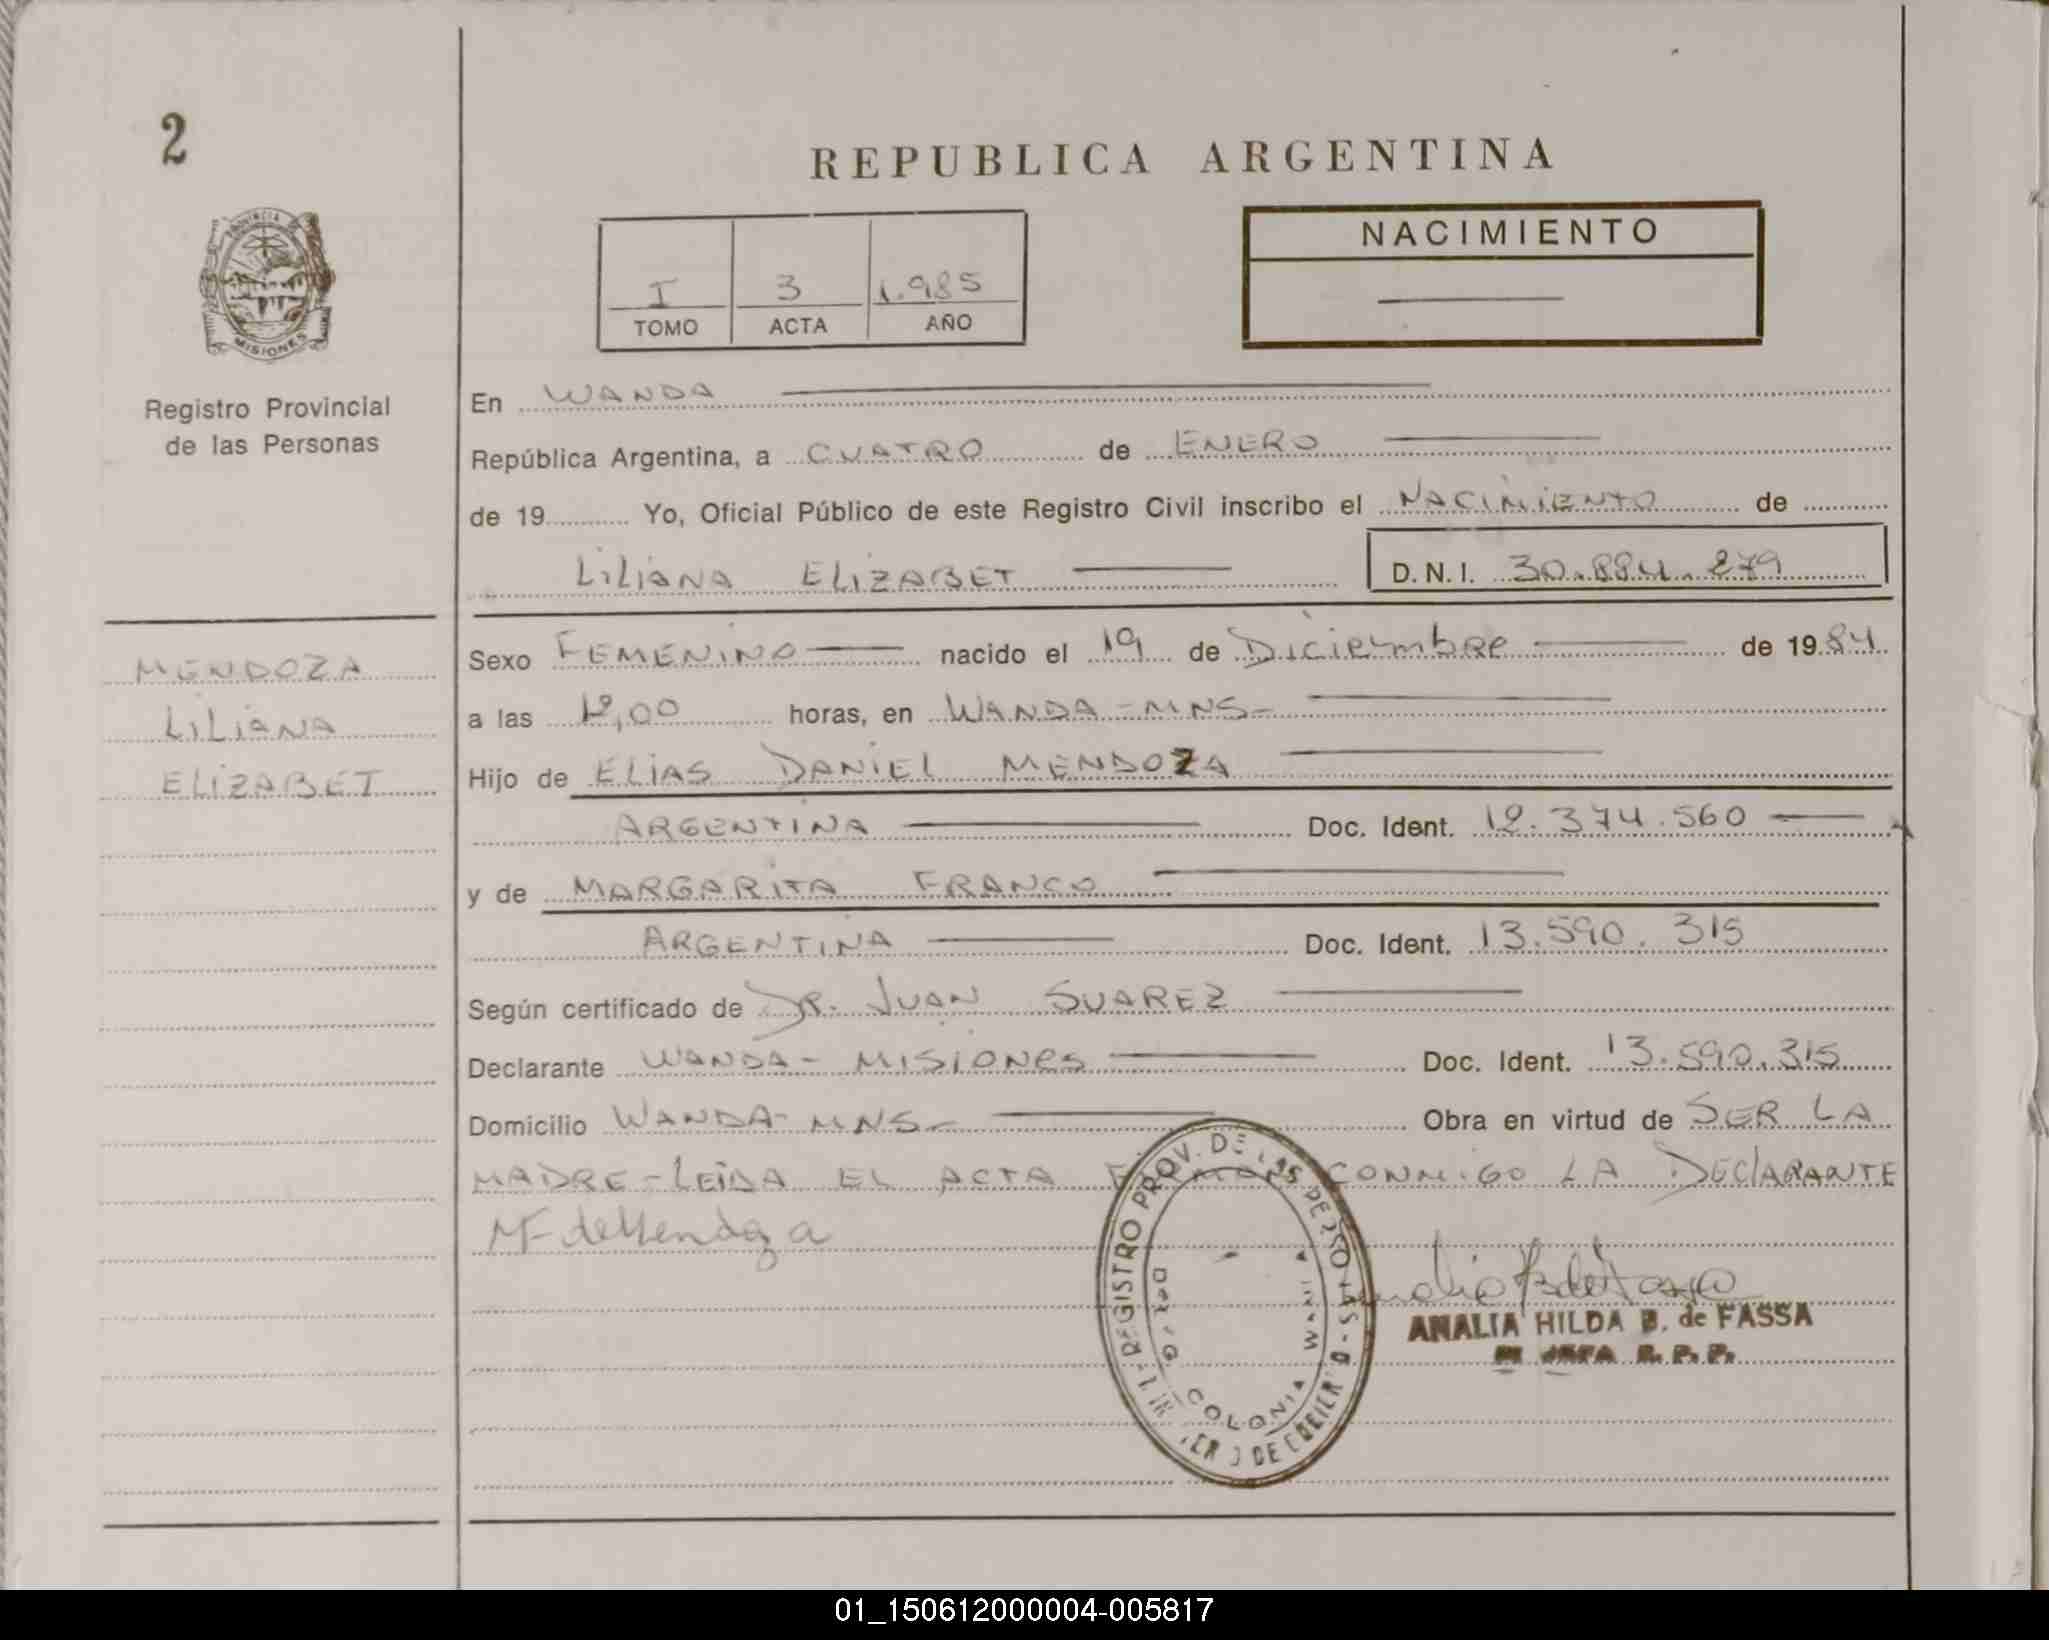 2
REPUBLICA ARGENTINA
PROVINCIA DE
MISIONES
Registro Provincial
de las Personas
I 3 1.985
TOMO ACTA AÑO
NACIMIENTO
En WANDA
República Argentina, a CUATRO de ENERO
de 19 Yo, Oficial Público de este Registro Civil inscribo el NACIMIENTO de
LILIANA ELIZABET D.N.I. 30.884.279
MENDOZA
LILIANA
ELIZABET
Sexo FEMENINO nacido el 19 de DiciEMbRE de 1984
a las 12,00 horas, en WANDA-MNS-
Hijo de ELIAS DANIEL MENDOZA
ARGENTINA Doc. Ident. 12.374.560
y de MARGARITA FRANCO
ARGENTINA Doc. Ident. 13.590.315
Según certificado de DR. JUAN SUAREZ
Declarante WANDA- MISIONES Doc. Ident. 13.590.315
Domicilio WANDA-MNS- Obra en virtud de SER LA
MADRE-LEIDA EL ACTA CONMIGO LA DECLARANTE
de Mendoza
REGISTRO PROV. DE LAS
COLONIA WANDA
ANALIA HILDA B. de FASSA
JEFA R. P. P.
01_150612000004-005817